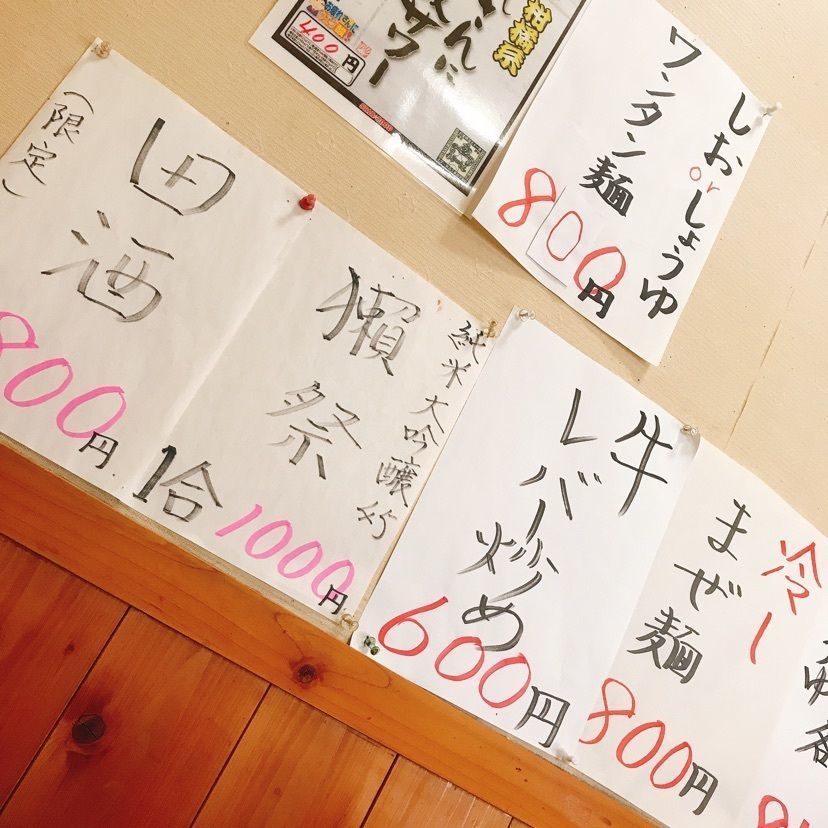 し
柑橘系
んに
サワー
400円
しお
or
しょうゆ
ワンタン麺
800円
田酒
(限定)
800円
純米大吟醸45
獺祭
1合
1000円
牛
レバー炒め
600円
冷し
まぜ麺
800円